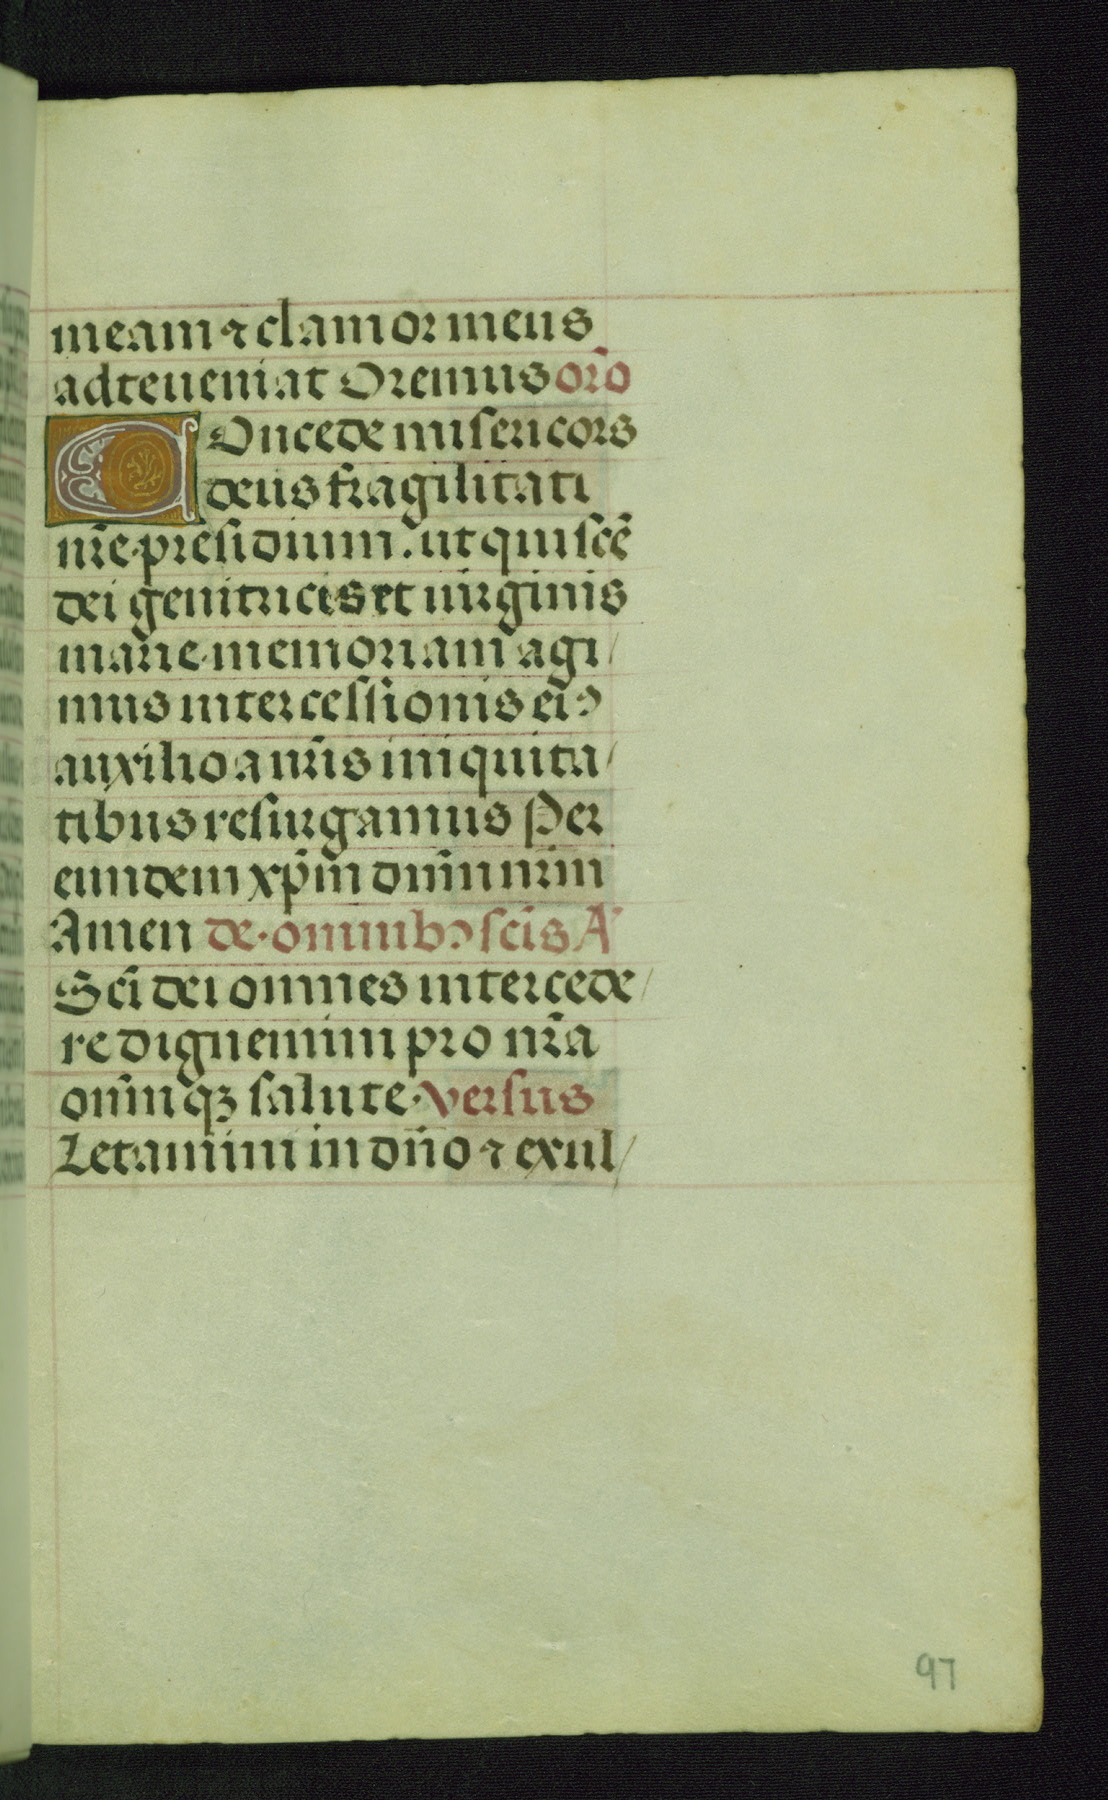 meam ⁊ clamor meus
ad te ueniat Oremus or̄o
COncede misericors
deus fragilitati
nr̄e presidium. ut qui sc̄e
dei genitricis et uirginis
marie memoriam agi/
mus intercessionis ei᷒
auxilio a nr̄is iniquita/
tibus resurgamus Per
eundem xp̄m dn̄m nr̄m
Amen de omnibꝯ sc̄is A᷎
Sc̄i dei omnes intercede/
re dignemini pro nr̄a
omn̄iqꝫ salute. versus
Letamini in dn̄o ⁊ exul/
97